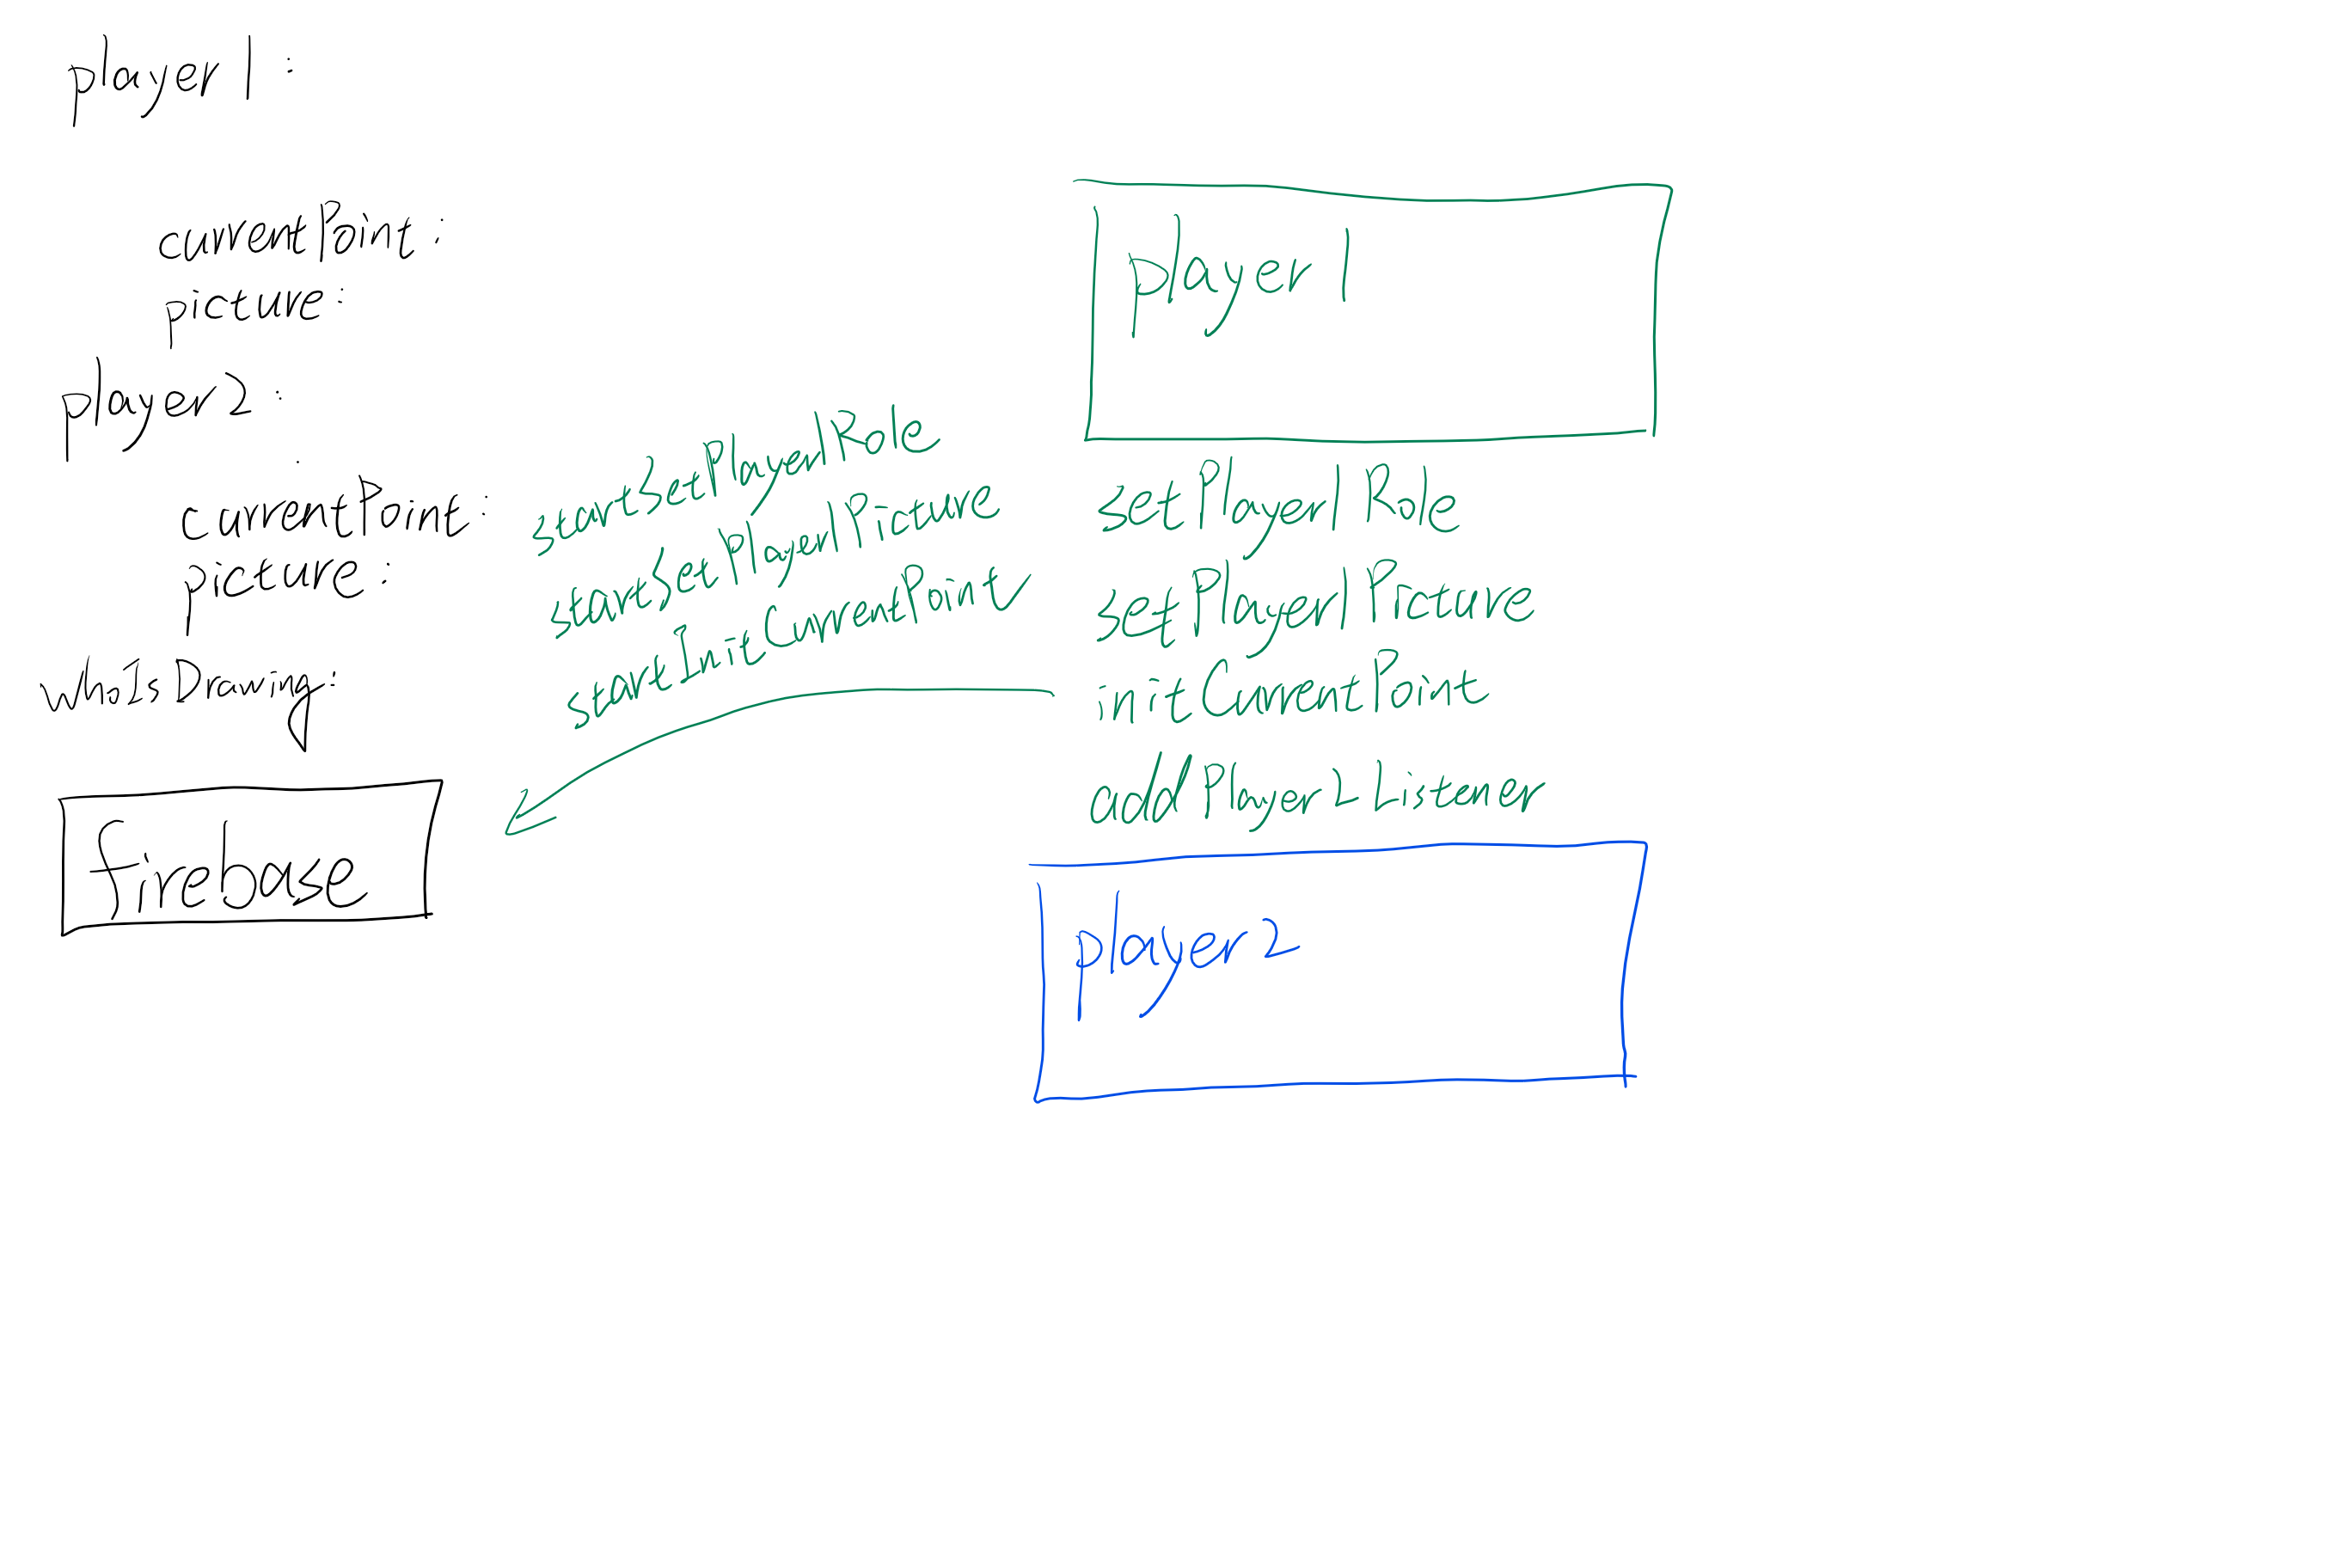 player1:
currentPoint:
picture:
player2:
currentPoint:
picture:
whoIsDrawing:
firebase
startSetPlayerRole
startSetPlayerPicture
startInitCurrentPoint
player1
setPlayerRole
setPlayerPicture
initCurrentPoint
addPlayer2Listener
player2